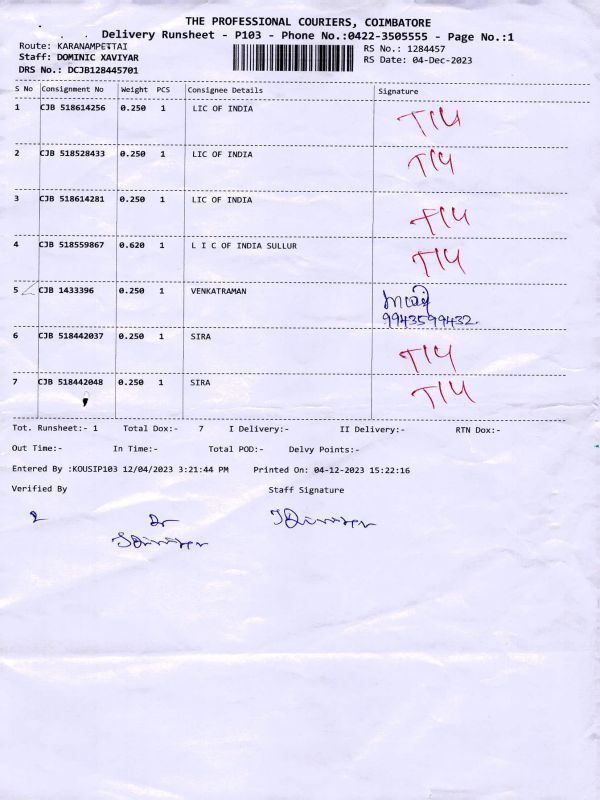 THE PROFESSIONAL COURIERS, COIMBATORE
Delivery Runsheet - P103 - Phone No.:0422-3505555 - Page No.:1
Route: KARANAMPETTAI RS No.: 1284457
Staff: DOMINIC XAVIYAR RS Date: 04-Dec-2023
DRS No.: DCJB128445701
S No Consignment No Weight PCS Consignee Details Signature
1 CJB 518614256 0.250 1 LIC OF INDIA T14
2 CJB 518528433 0.250 1 LIC OF INDIA T14
3 CJB 518614281 0.250 1 LIC OF INDIA T14
4 CJB 518559867 0.620 1 L I C OF INDIA SULLUR T14
5 CJB 1433396 0.250 1 VENKATRAMAN
9943599432.
6 CJB 518442037 0.250 1 SIRA T14
7 CJB 518442048 0.250 1 SIRA T14
Tot. Runsheet:- 1 Total Dox:- 7 I Delivery:- II Delivery:- RTN Dox:-
Out Time:- In Time:- Total POD:- Delvy Points:-
Entered By :KOUSIP103 12/04/2023 3:21:44 PM Printed On: 04-12-2023 15:22:16
Verified By Staff Signature